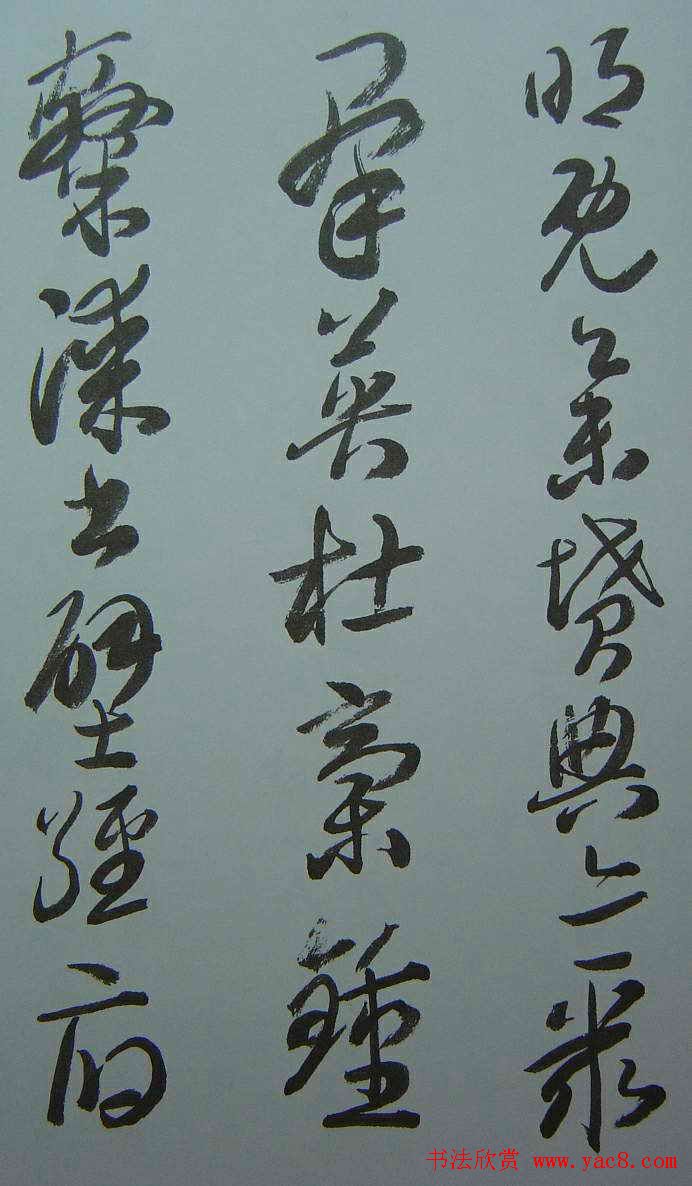 明既集墳典亦聚
群英杜稾鍾
隸漆書壁經府
书法欣赏 www.yac8.com